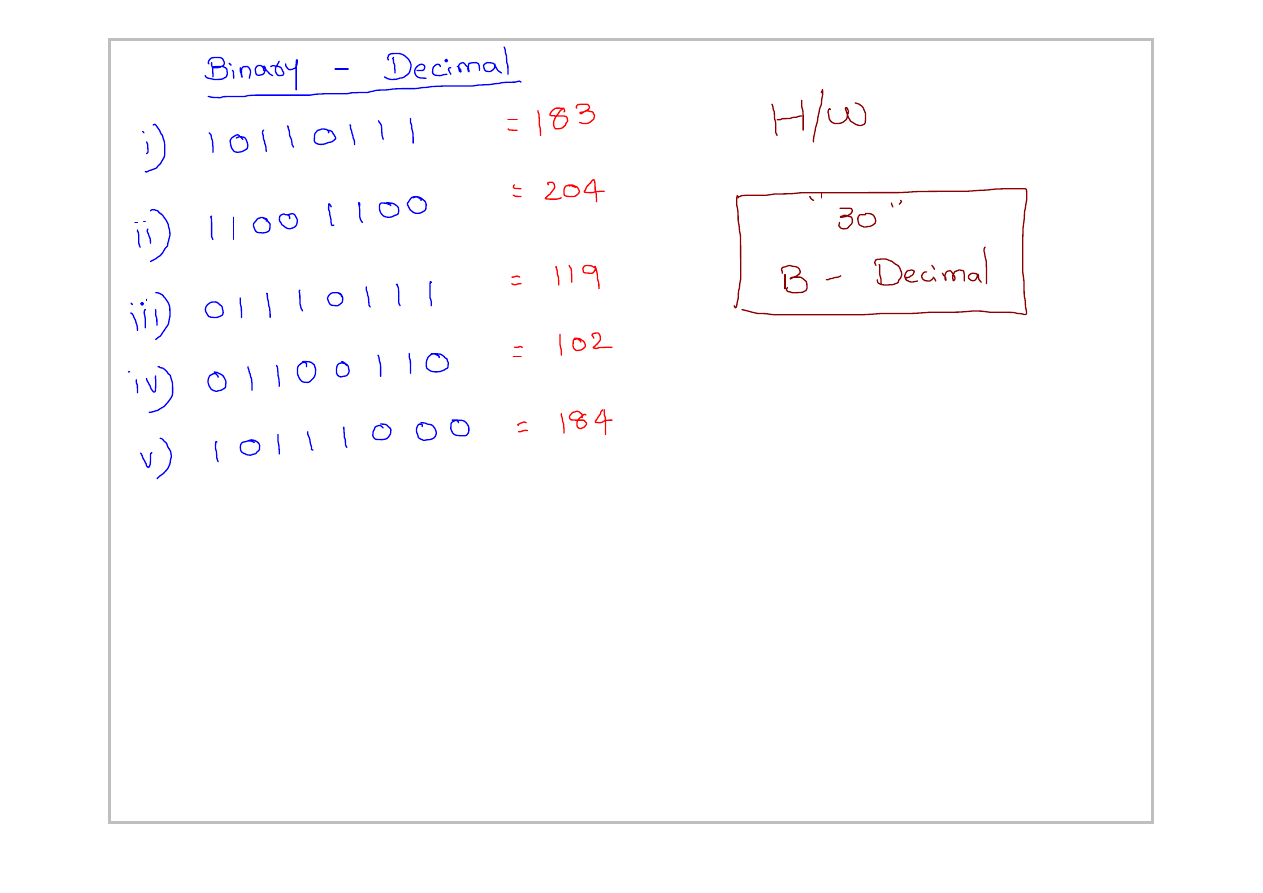 Binary - Decimal
i) 10110111 = 183
ii) 11001100 = 204
iii) 01110111 = 119
iv) 01100110 = 102
v) 10111000 = 184
H/W
"30"
B - Decimal